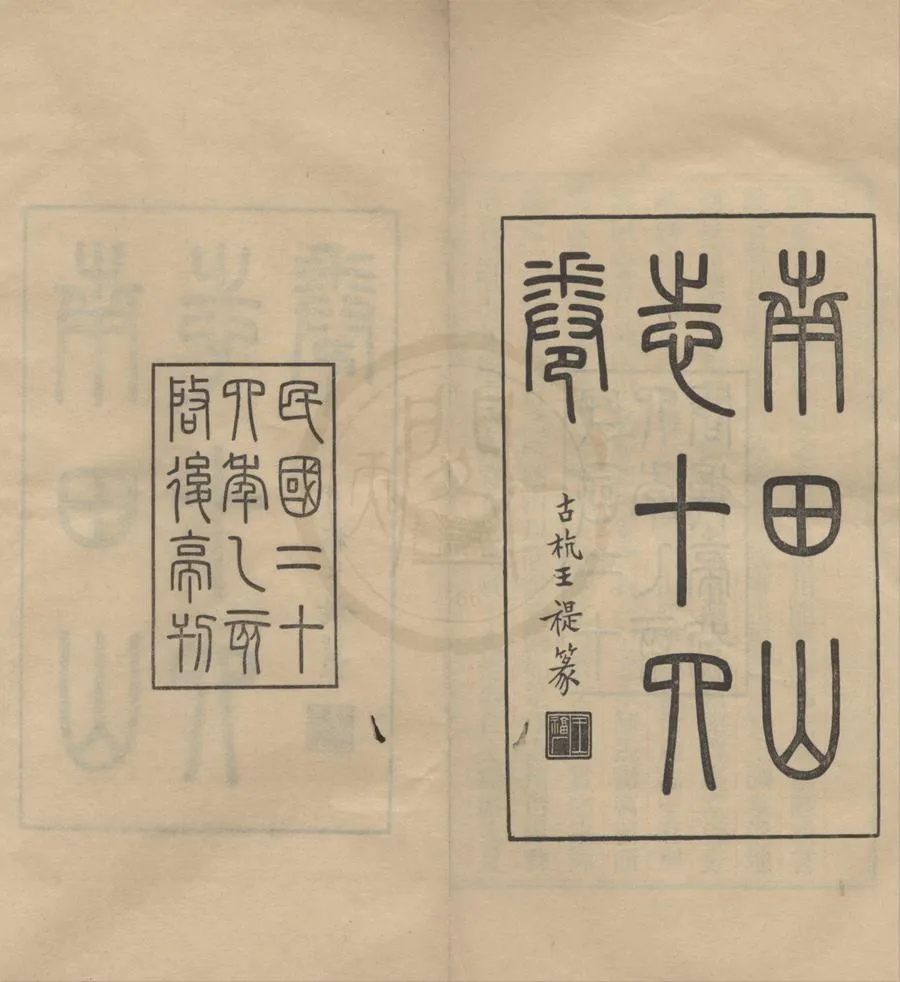 南田山
志十四
卷
古杭王禔篆
王福厂
民國二十
四年乙亥
啓後亭刊